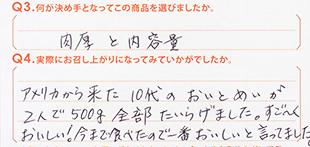 Q3.何が決め手となってこの商品を選びましたか。
肉厚と内容量
Q4.実際にお召し上がりになってみていかがでしたか。
アメリカから来た10代のおいとめいが
2人で500g全部たいらげました。すご〜く
おいしい!今まで食べたので一番おいしいと言ってました